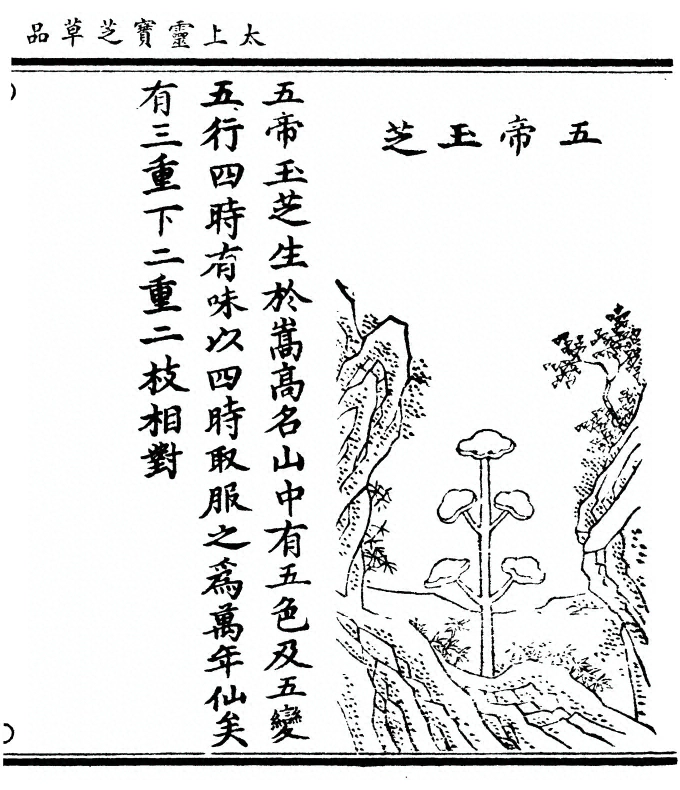 太上靈寶芝草品
五帝玉芝
五帝玉芝生於嵩高名山中有五色及五變
五行四時有味以四時取服之爲萬年仙矣
有三重下二重二枝相對